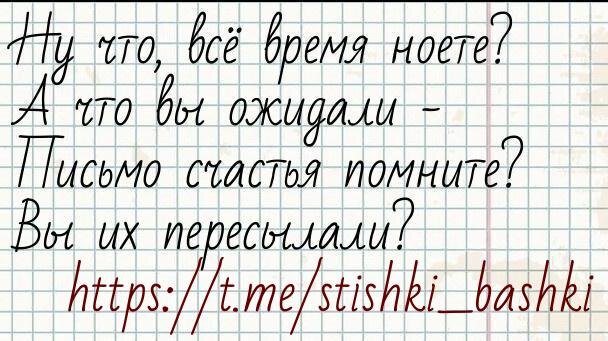 Ну что, всё время ноете?
А что вы ожидали -
Письмо счастья помните?
Вы их пересылали?
https://t.me/stishki_bashki